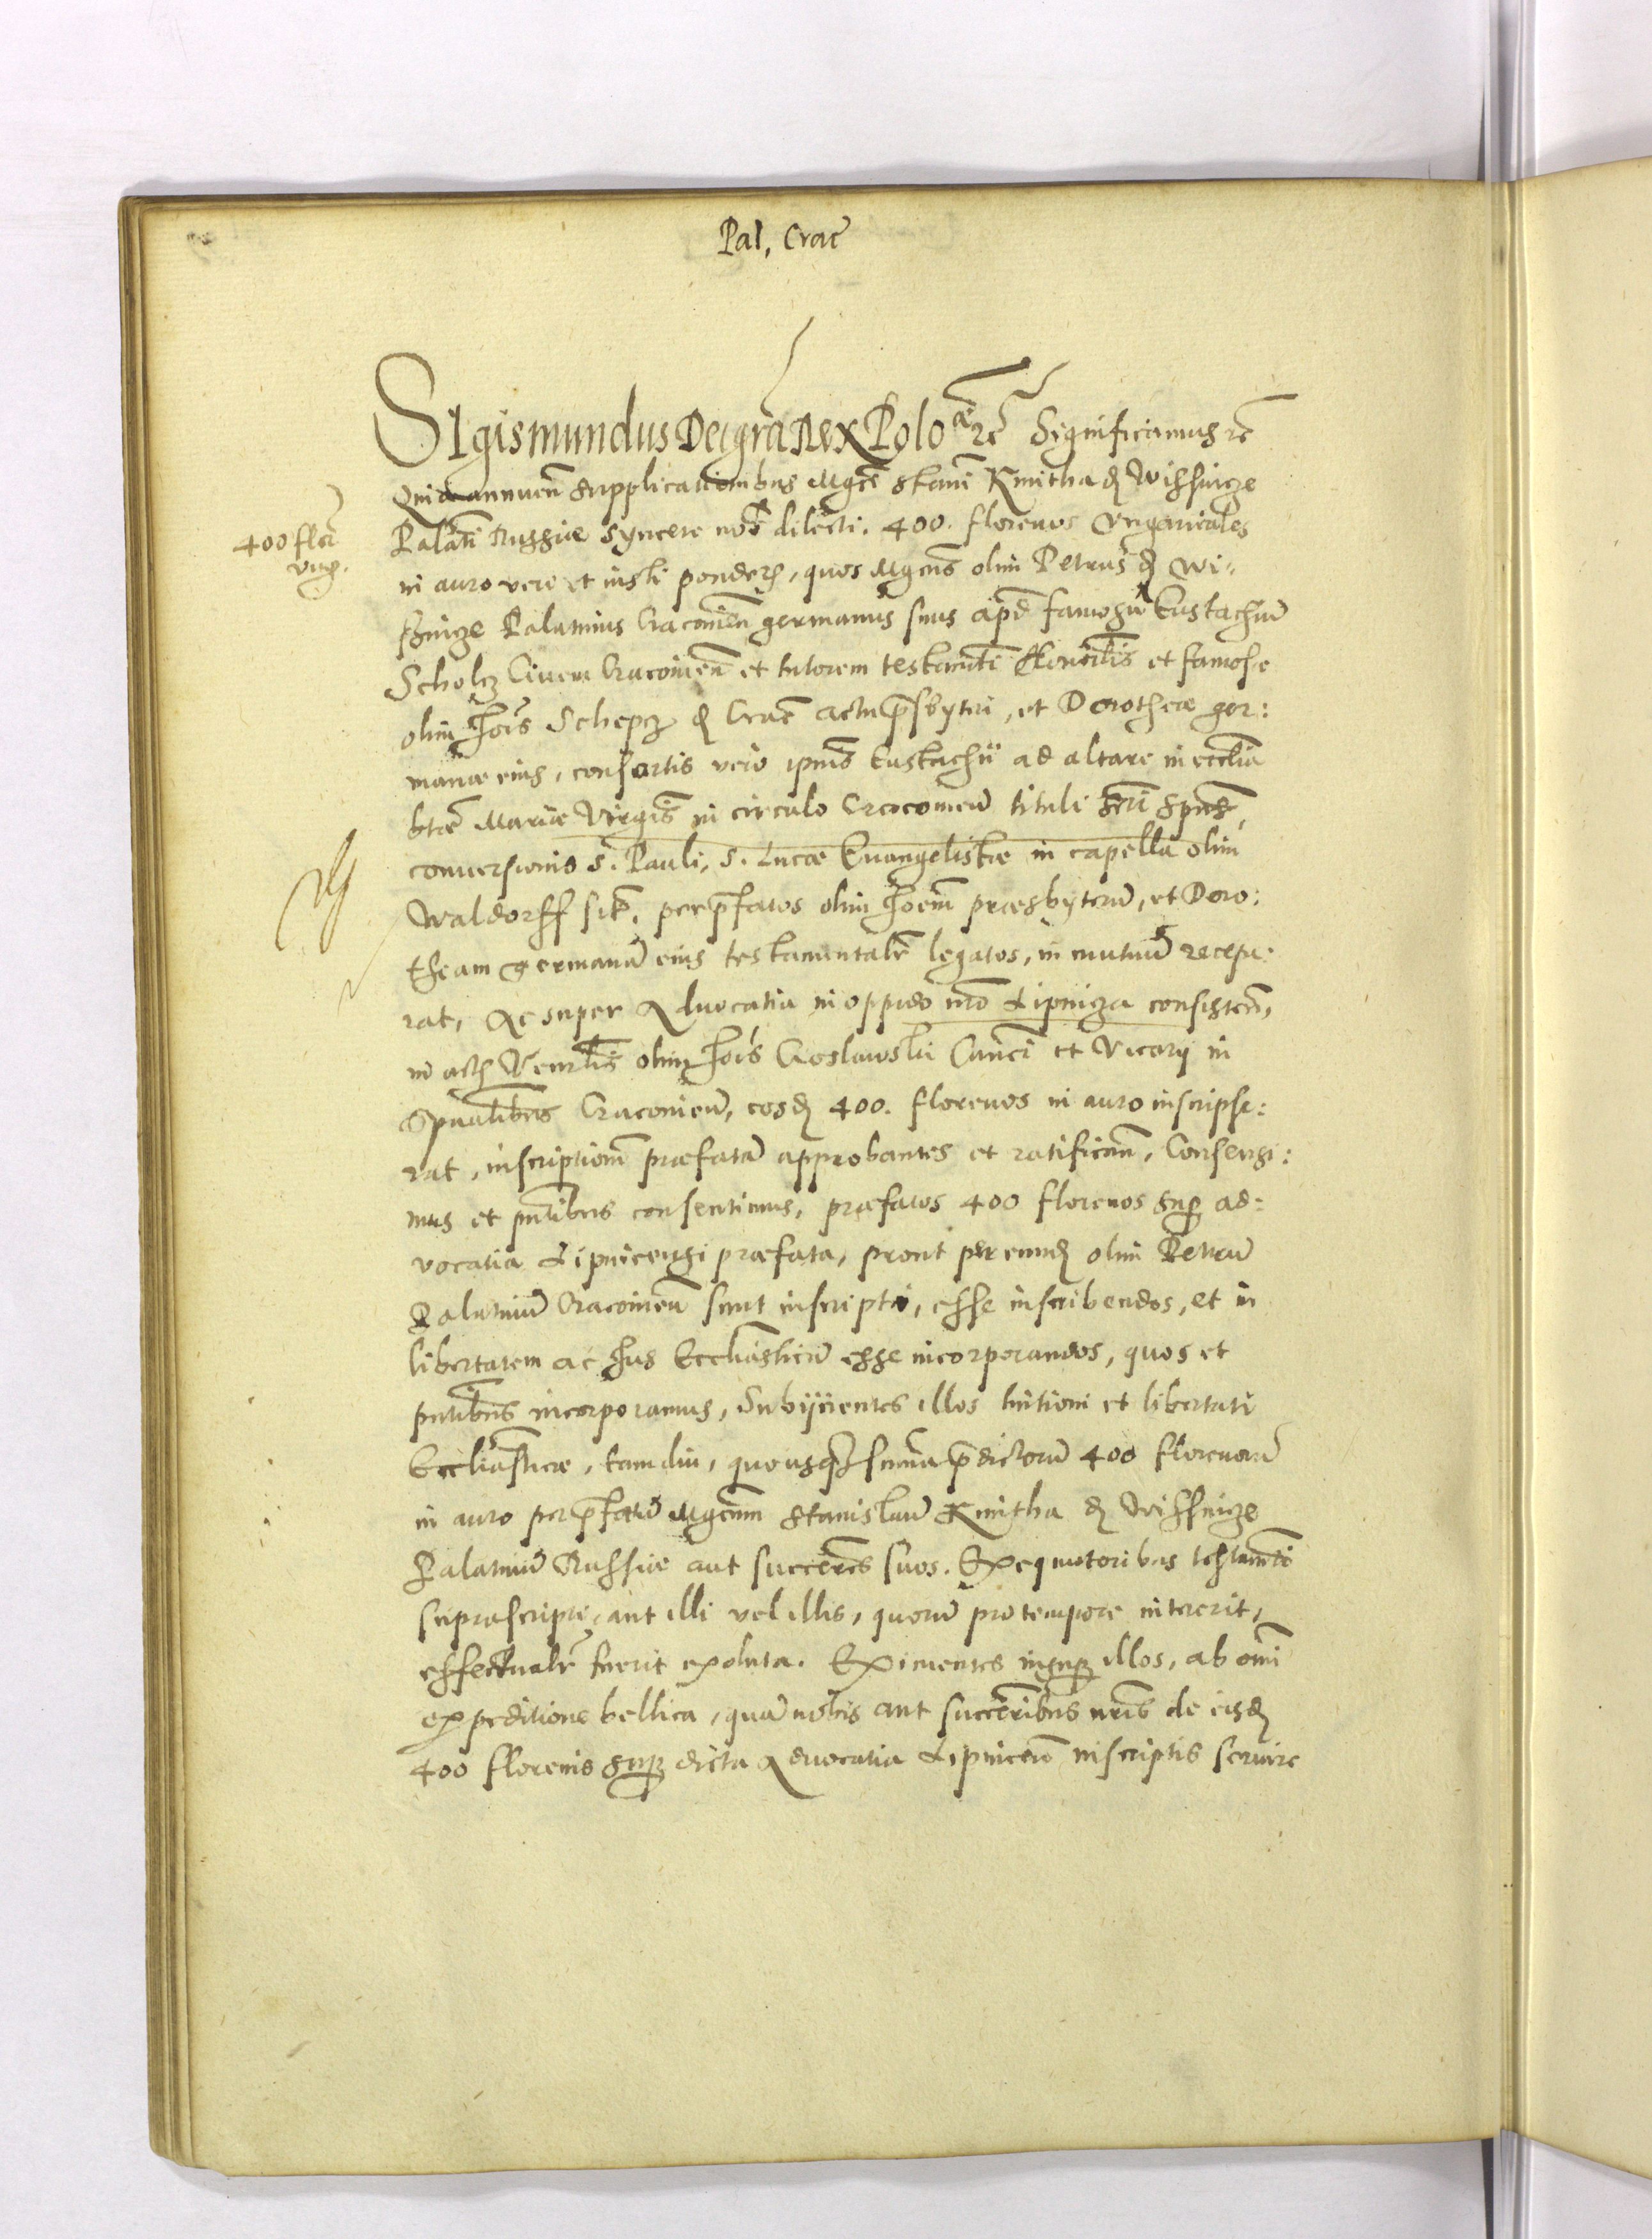 Pal, Crac̃
SIgismundus Dei gr̃a Rex Poloniæ ꝛc̃ Significamus ꝛc̃
Quia annuen̄ supplicationibus Mgc̃i Stani Kmitha d̨ Wissnicze
400 flor̃
Palatī Russiæ syncere nob̃ dilecti. 400. florenos Vngaricales
Vng.
in auro veri et iusti ponder̨, quos Mgcus olim Petrus d̨ Wi„
sznicze Palatinus Cracouien̄ germanus suus apd̃ famosū Eustachiū
Scholcz Ciuem Cracouien̄ et tutorem testamti Honor̃lis et famosæ
olim Jois Schepcz d̨ Crac̃ actu p̃sbyteri, et Dorotheæ ger:
manæ eius, consortis vero ipius Eustachii ad altare in eccl̃ia
btæ Mariæ Virgis in circulo Cracouien̄ tituli Scti Spus,
conuersionis S. Pauli, S. Lucæ Euangelistæ in capella olim
Waldorff sit̃. per p̃fatos olim Joēm præsbyterū, et Doro:
theam germanā eius testamentalr̃ legatos, in mutuū recepe:
rat, Ac super Aduocatia in oppido nr̃o Lipnicza consisten̄,
in act̨ Venr̃lis olim Jois Croslawski Canci et Vicarij in
Spualibus Cracouien̄, eosd̨ 400. florenos in auro inscripse:
rat, inscriptionē præfatā approbantes et ratifican̄, Consensi:
mus et pntibus consentimus, præfatos 400 florenos sup̱ ad:
vocatia Lipnicensi præfata, prout per eund̨ olim Petrū
Palatinū Cracouien̄ sunt inscripti, esse inscribendos, et in
libertatem ac Jus Eccl̃iasticū esse incorporandos, quos et
pntibus incorporamus, Subijcientes illos tuitioni et libertati
Eccl̃iasticæ, tamdiu, quousq̨ sum̄a p̃dictorū 400 florenorū
in auro per p̃fatū Mgcum Stanislaū Kmitha d̨ Wissnicze
Palatinū Russiæ aut successores suos. Exequutoribus testamti
suprascripti, aut illi vel illis, quorū pro tempore intererit,
effectualr̃ fuerit exoluta. Eximentes insup̱ illos, ab omi
expeditione bellica, quā nobis aut succesoribus nris de eisd̨
400 florenis sup̱ dicta Aduocatia Lipnicen̄ inscriptis seruire